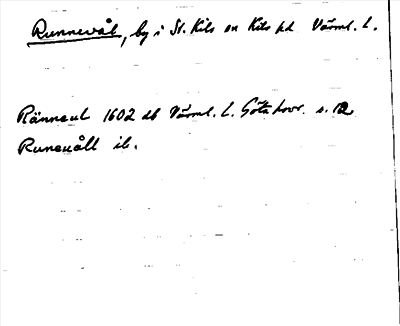 Runnevål, by i St. Kils sn Kils hd Värml. l.
Ränneul 1602 db Värml. l. Göta hovr. s. 12
Runeuåll ib.